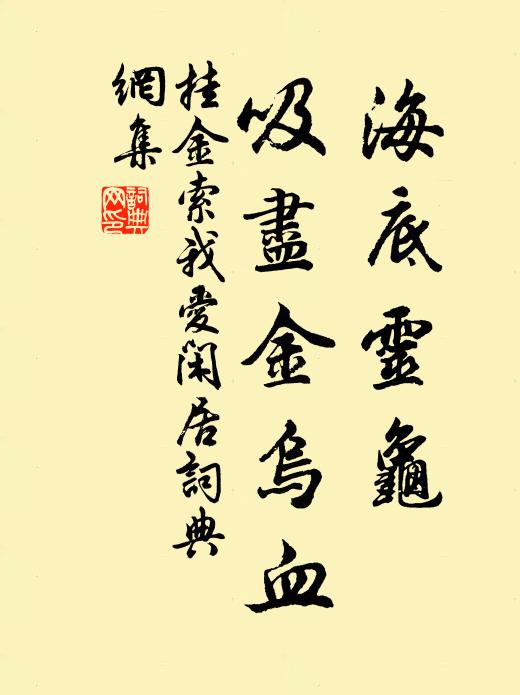 海底靈龜
吸盡金烏血
挂金索我愛閑居詞典
網集
詞典
网印